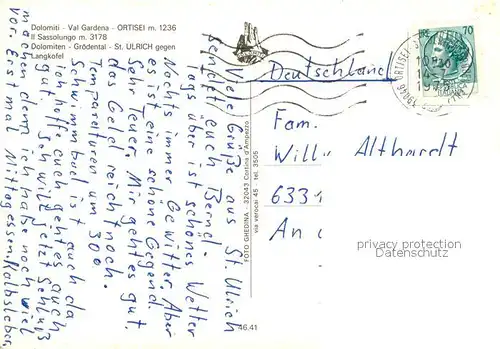 Dolomiti - Val Gardena - ORTISEI m. 1236
Il Sassolungo m. 3178
Dolomiten - Grödental - St. ULRICH gegen
Langkofel
Viele Grüße aus St. Ulrich
sendet euch Bernd.
Tags über ist schönes Wetter
Nachts immer Gewitter. Aber
es ist eine schöne Gegend.
Sehr teuer. Mir geht es gut.
das Geld reicht noch.
Temparaturen um 30°.
Schwimmbad ist auch da
ich hoffe euch geht es auch
gut. Ich will jetzt Schluß
machen denn ich habe noch viel
vor. Erst mal Mittagessen. Kalbsleber.
FOTO GHEDINA - 32043 Cortina d'Ampezzo
via verocai 45 - tel. 3505
46.41
70
39046 ORTISEI
Deutschland
Fam.
Willi Althardt
633
An
privacy protection
Datenschutz